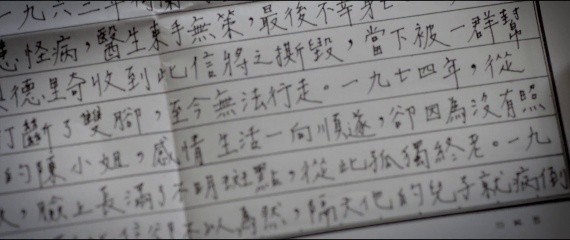 一九六二年
怪病，醫生束手無策，最後不幸身亡
德里奇收到此信將之撕毀，當下被一群幫
打斷了雙腳，至今無法行走。一九七四年，從
的陳小姐，感情生活一向順遂，卻因為沒有照
，臉上長滿了不明斑點，從此孤獨終老。一九
不以為然，隔天他的兒子就病倒